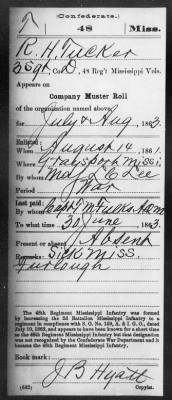 (Confederate.)
T 48 Miss.
R. H. Tucker
3 Sgt, Co. D, 48 Reg't Mississippi Vols.
Appears on
Company Muster Roll
of the organization named above,
for July & Aug, 1863.
Enlisted:
When August 14, 1861.
Where Graysport Missi.
By whom Maj. Lee
Period War
Last paid:
By whom Capt
To what time 30 June, 1863.
Present or absent Absent
Remarks: Sick Miss.
Furlough
The 48th Regiment Mississippi Infantry was formed
by increasing the 2d Battalion Mississippi Infantry to a
regiment in compliance with S. O. No. 169, A. & I. G. O., dated
July 19, 1862, and appears to have been known for a short time
as the 48th Regiment Mississippi Infantry; but that designation
was not recognized by the Confederate War Department and it
became the 48th Regiment Mississippi Infantry.
Book mark:
J B Hyatt
(642) Copyist.